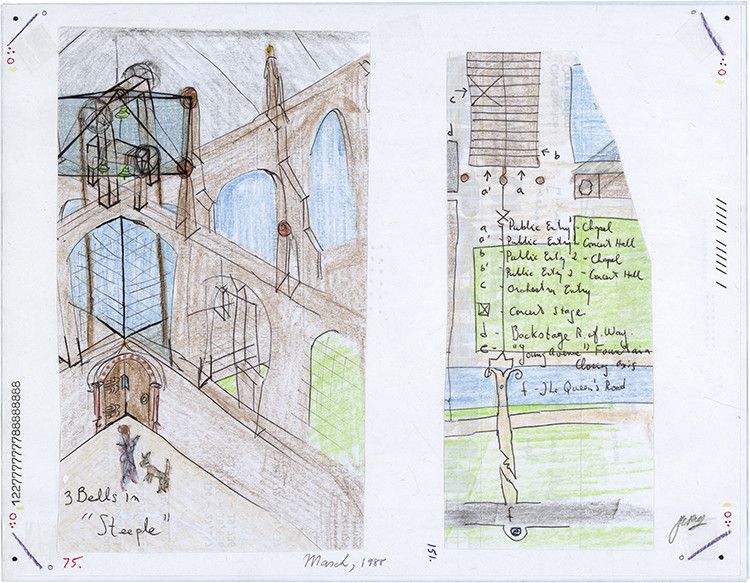 3 Bells in
"Steeple"
75.
March, 1988
122777777778888888888
c
d
b
a' a
a - Public Entry 1 - Chapel
a' - Public Entry - Concert Hall
b - Public Entry 2 - Chapel
b' Public Entry 2 - Concert Hall
c - Orchestra Entry
Concert Stage
d - Backstage R. of Way.
e - "Young Avenue" Fountain
Closing axis
f - The Queen's Road
f
151.